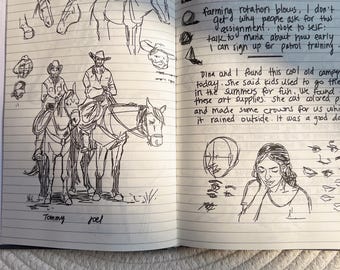 Tommy
Joel
farming rotation blows. I don't
get why people ask for this
assignment. Note to self:
talk to Maria about how early
I can sign up for patrol training
Dina and I found this cool old camp
today. She said kids used to go the
in the summers for fun. We found
these art supplies. She has colored p
and made some crowns for us whi
it rained outside. It was a good da